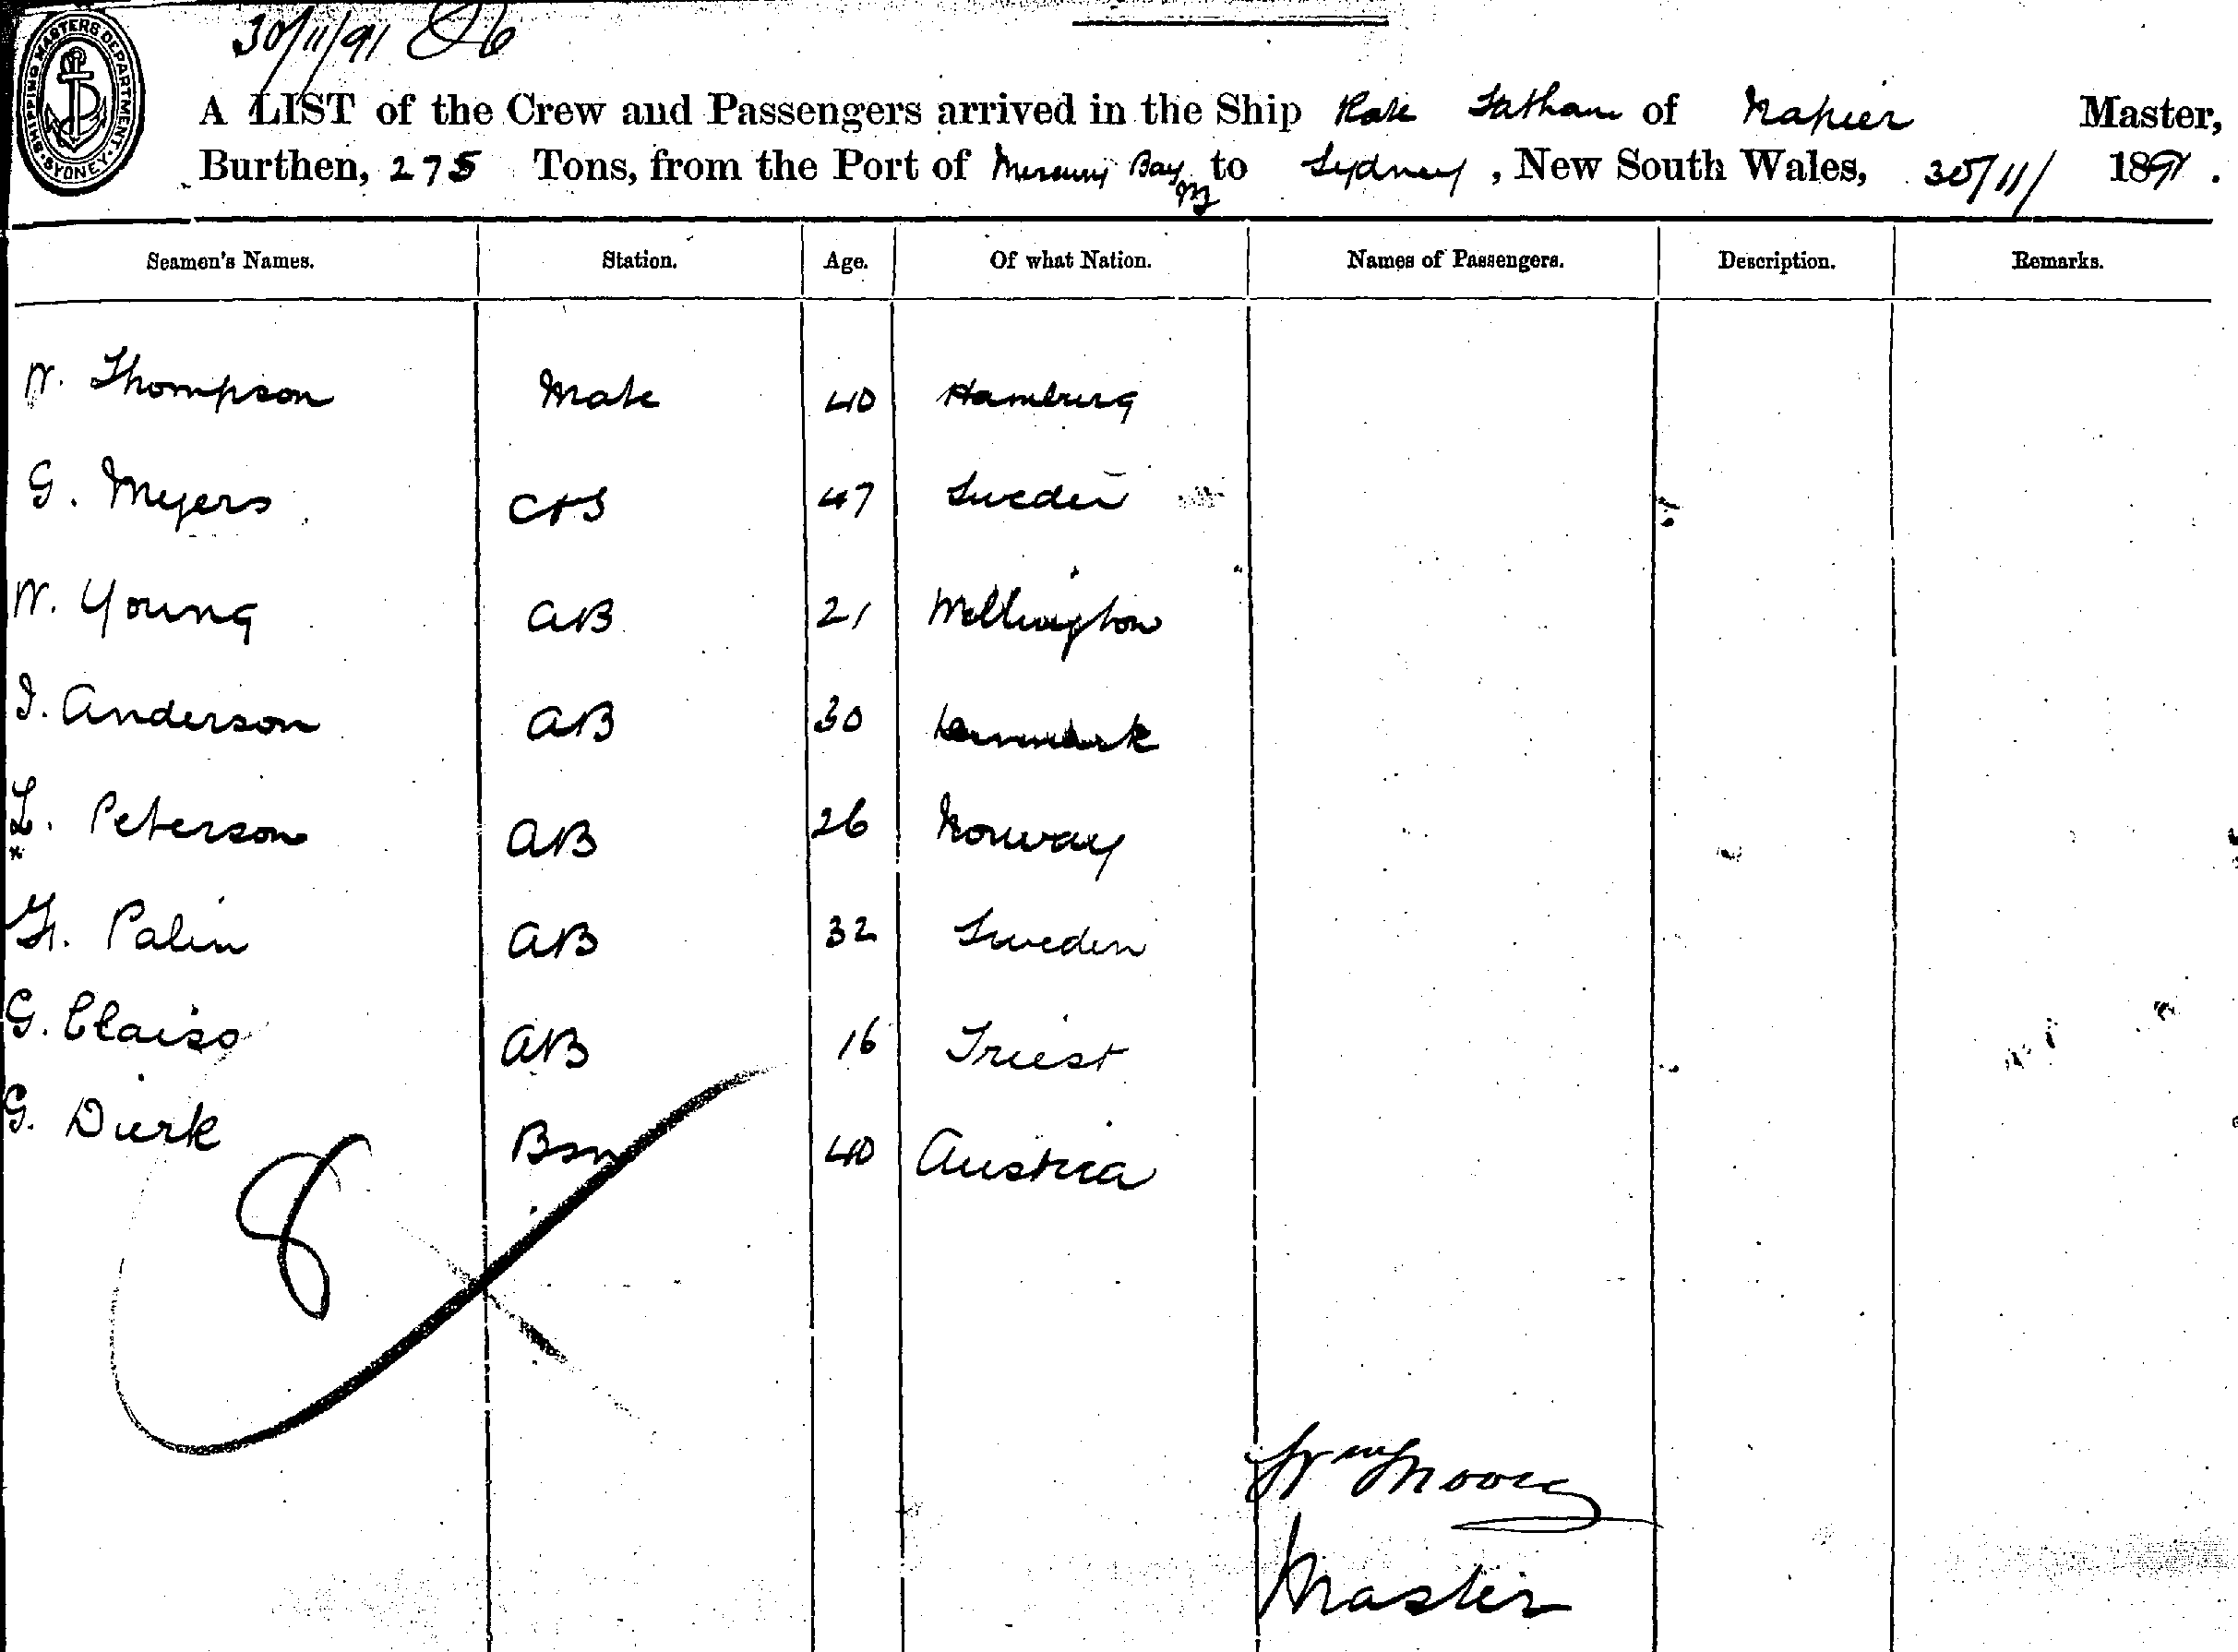 30/11/91
SHIPPING MASTERS DEPARTMENT SYDNEY
A LIST of the Crew and Passengers arrived in the Ship Kate Tatham of Napier Master,
Burthen, 275 Tons, from the Port of Mercury Bay NZ to Sydney, New South Wales, 30/11/ 1891.
Seamen's Names. Station. Age. Of what Nation. Names of Passengers. Description. Remarks.
W. Thompson Mate 40 Hamburg
G. Meyers C&S 47 Sweden
W. Young AB 21 Wellington
I. Anderson AB 30 Denmark
L. Peterson AB 26 Norway
Palin AB 32 Sweden
G. Claiso AB 16 Triest
G. Dierk Bsn 40 Austria
8
Wm Moore
Master